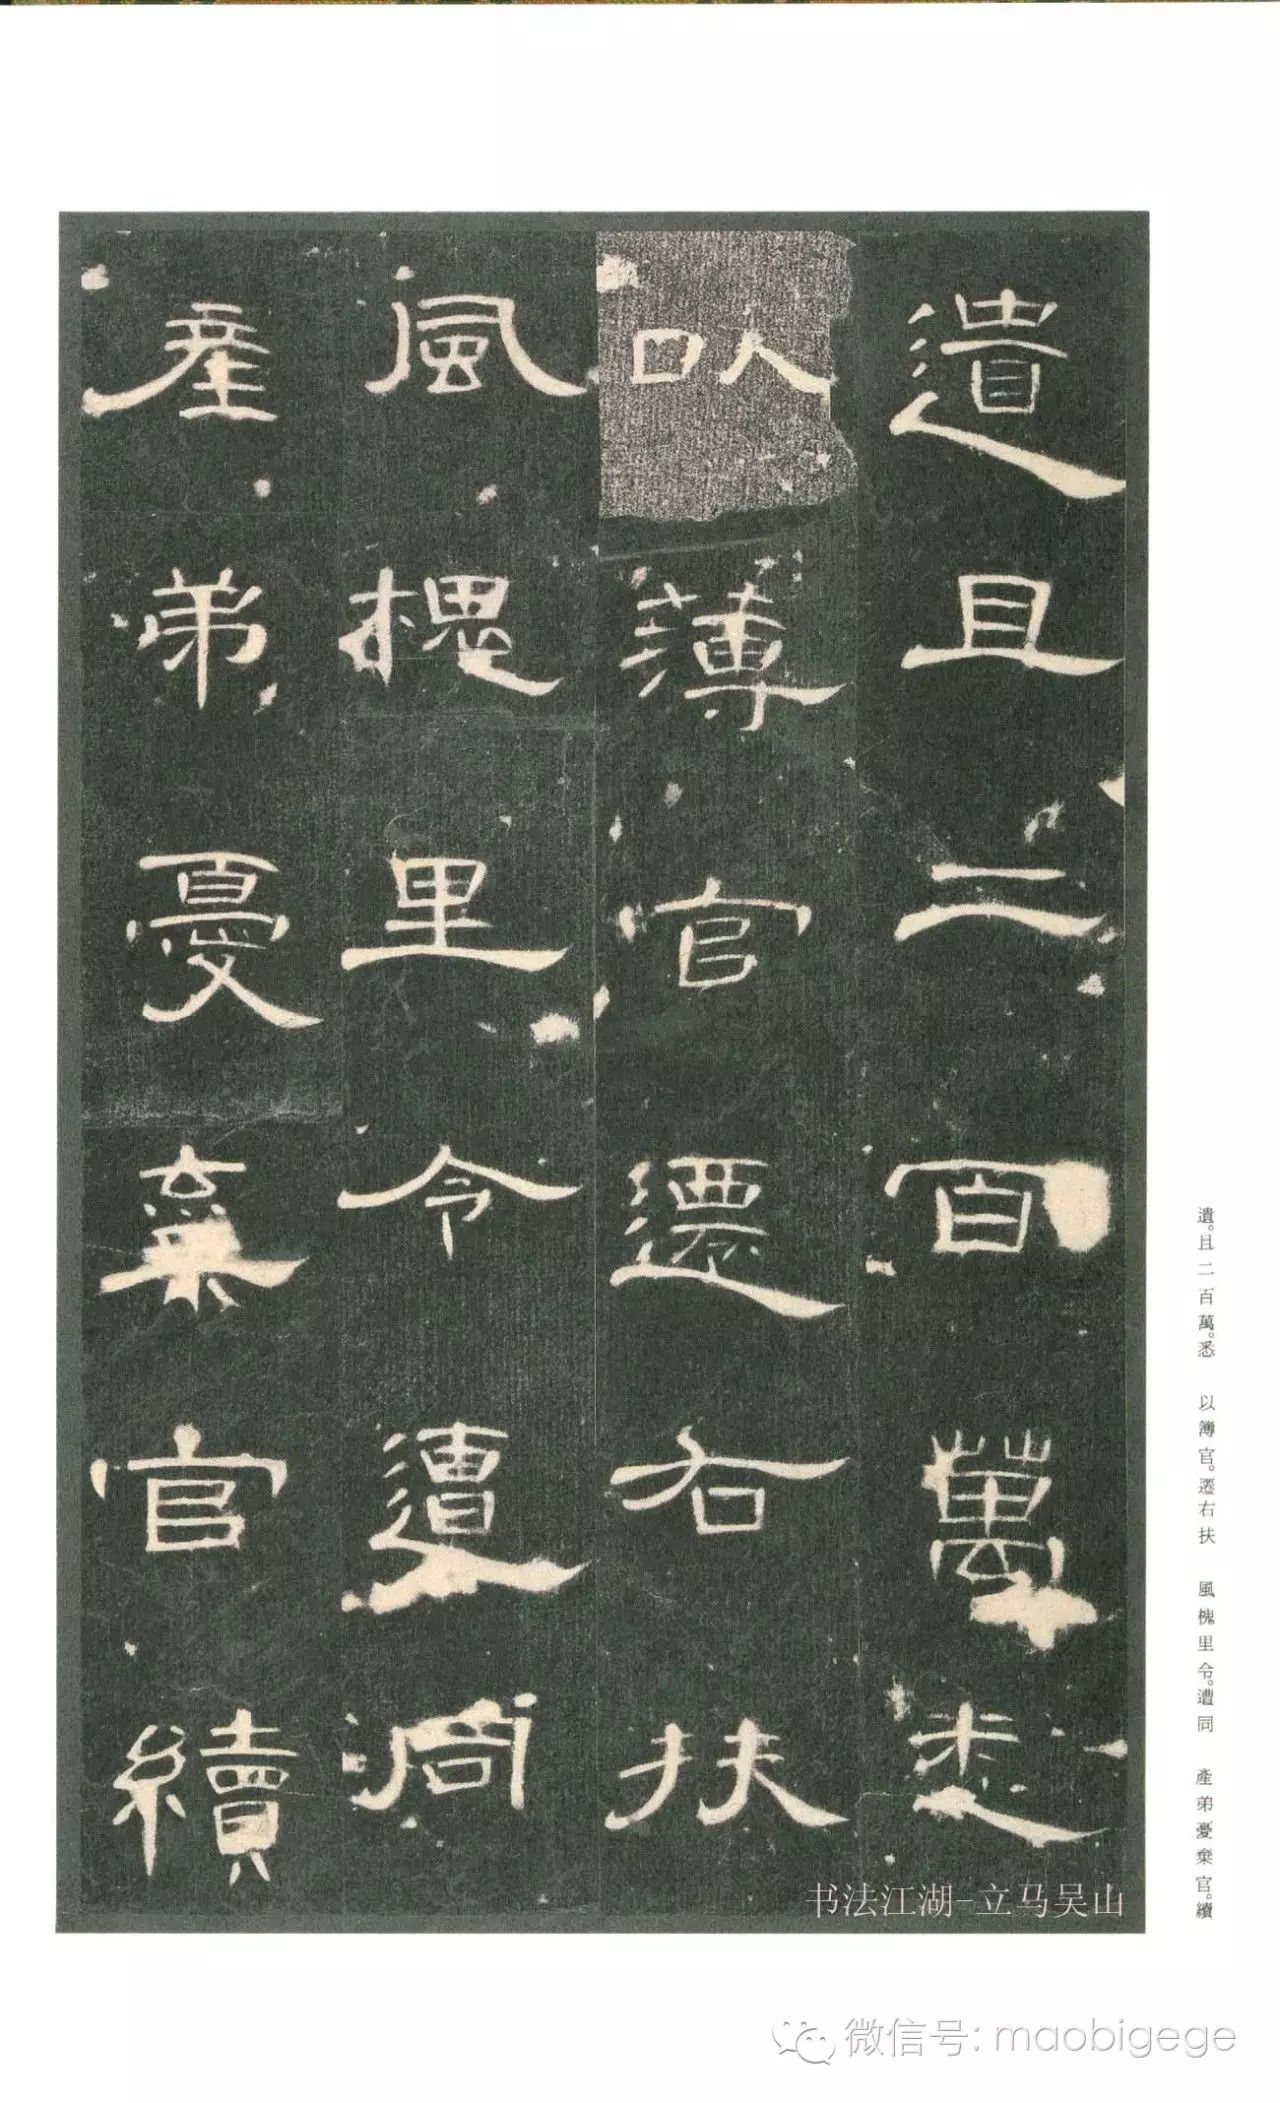 遺且二百萬悉
以薄官遷右扶
風槐里令遭同
產弟憂棄官續
遺。且二百萬。悉　以簿官。遷右扶　風槐里令。遭同　產弟憂棄官。續
书法江湖-立马吴山
微信号: maobigege